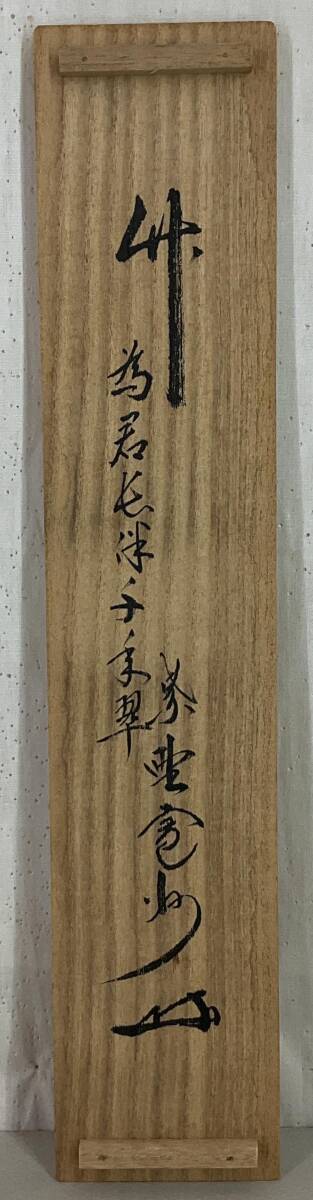 竹
為君長伴千年翠
紫野寛州